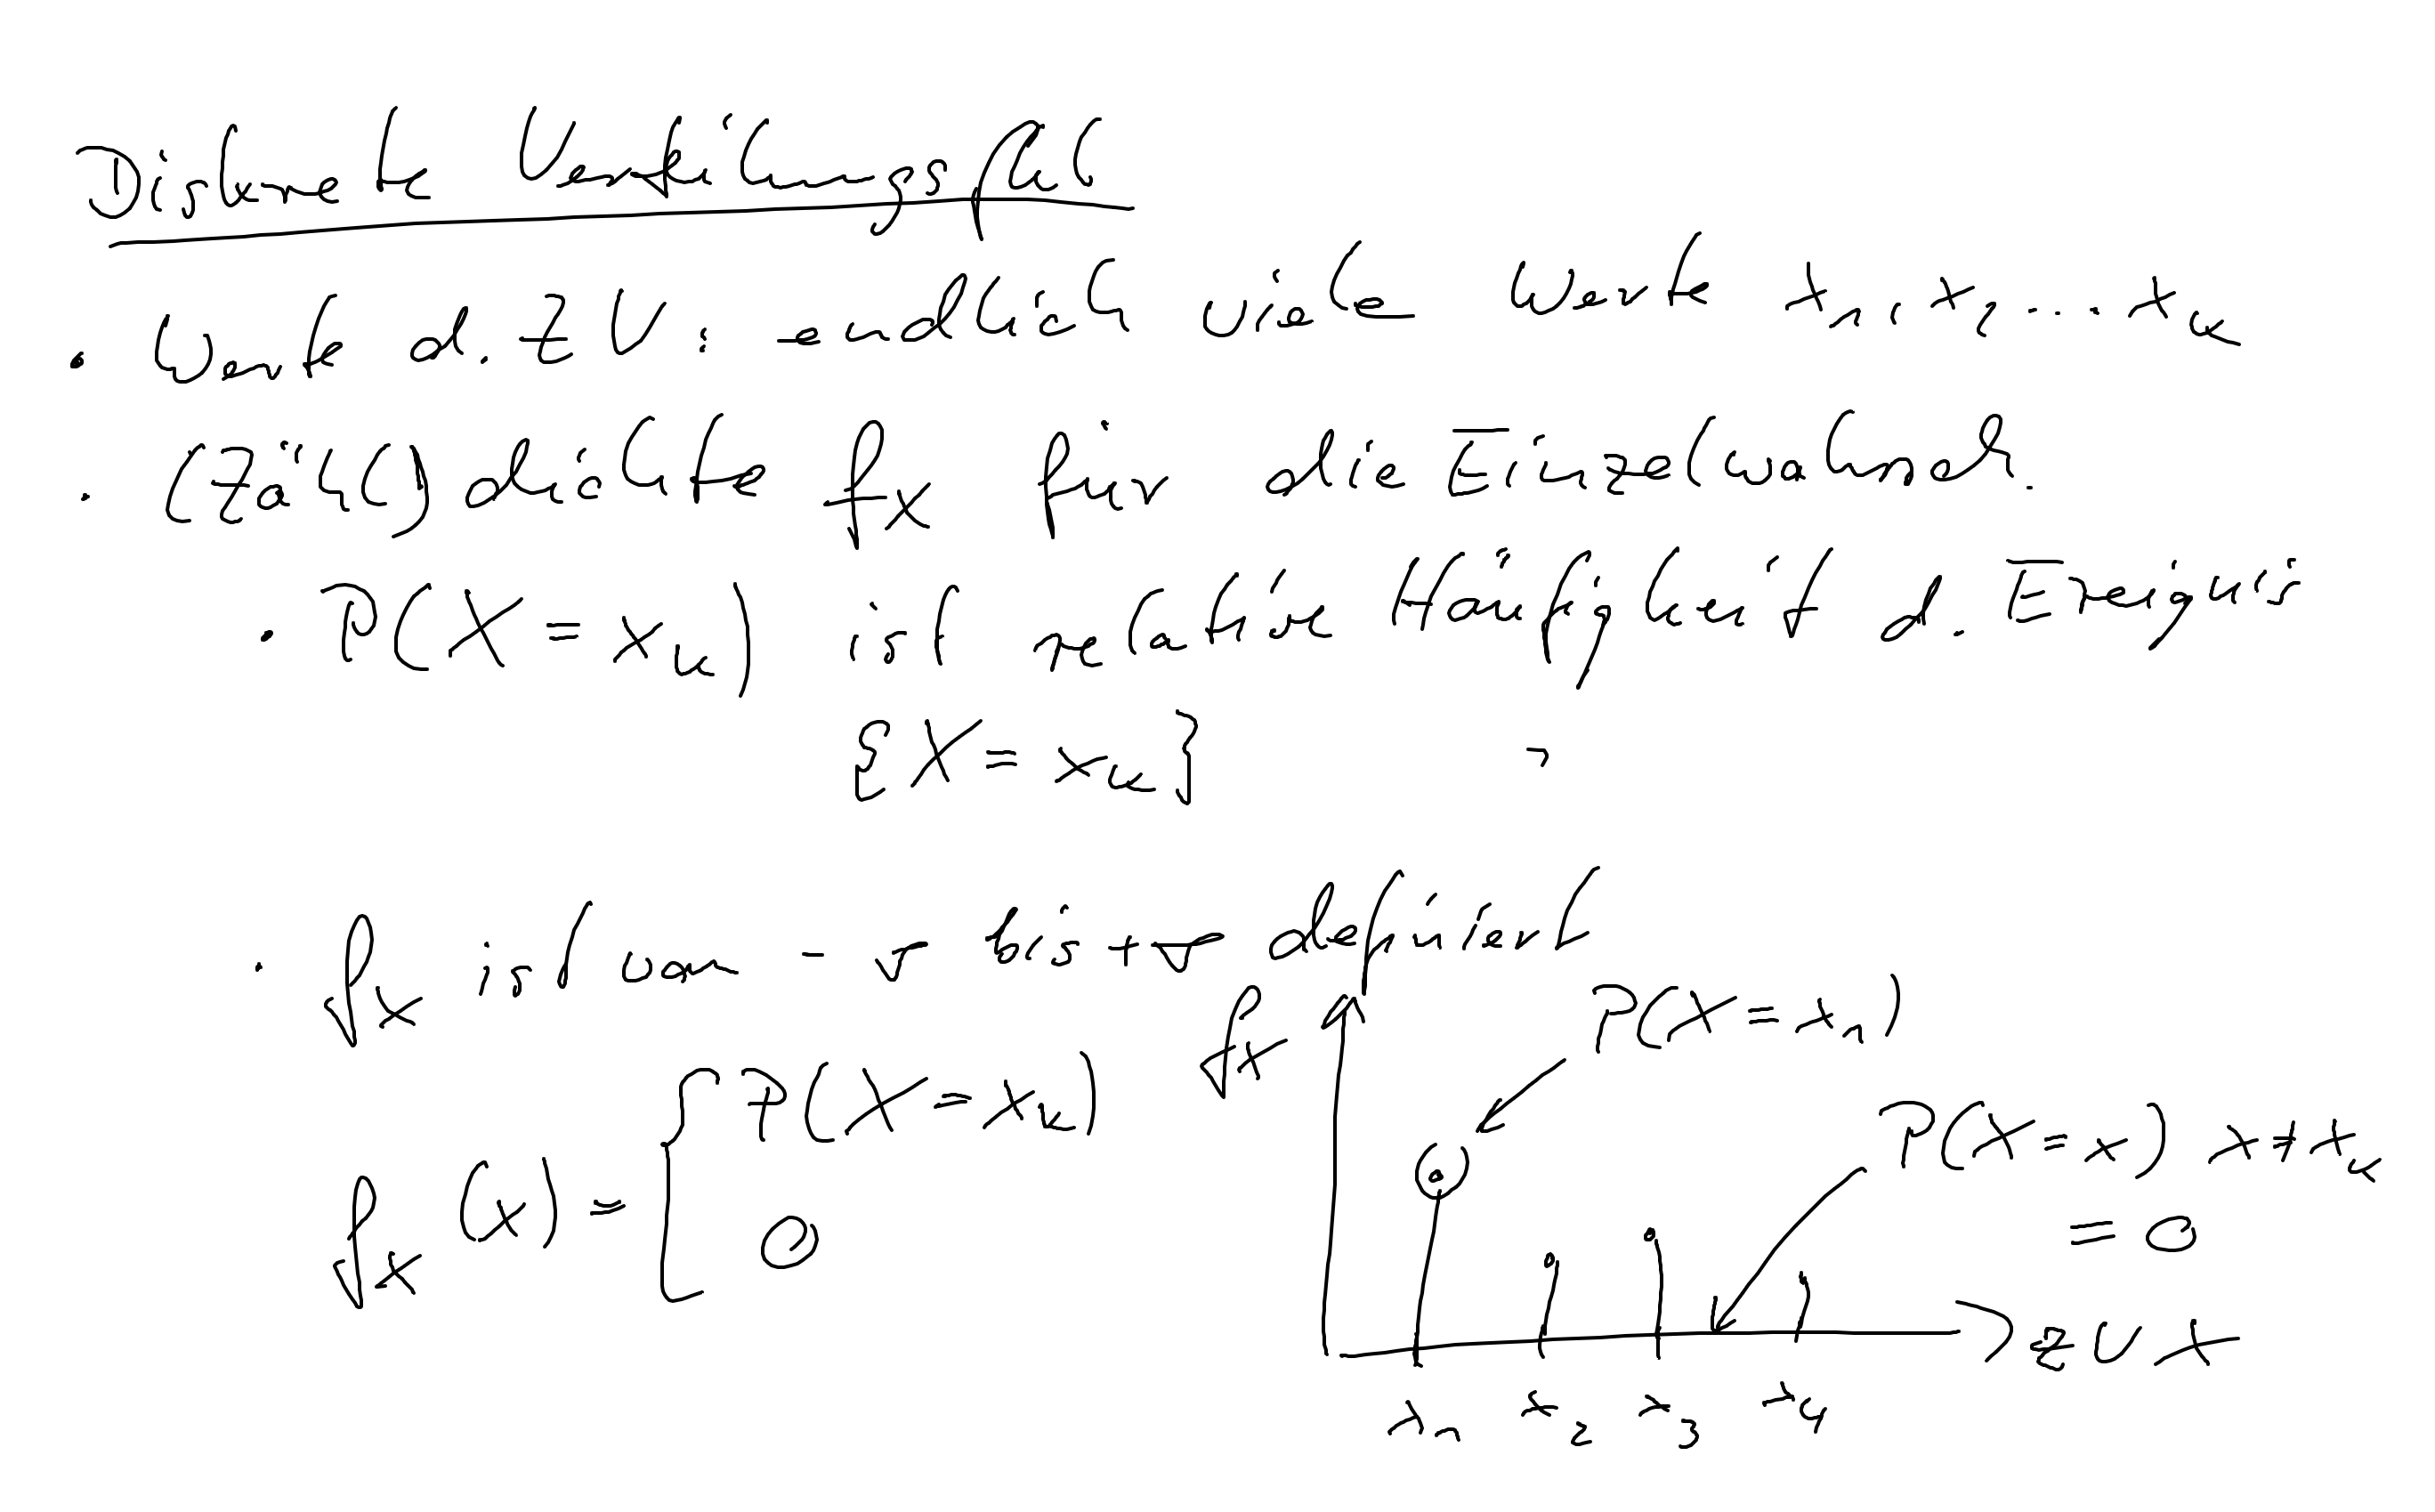 Diskrete Verteilungsfkt
• Werte d. ZV: endlich viele Werte x₁, x₂ ... xₖ
• (Zähl)dichte fₓ für die Einzelwahrsch.
• P(X = xₖ) ist relative Häufigkeit d. Ereignis
{X = xₖ}
• fₓ ist von -∞ bis +∞ definiert
fₓ
P(X = x₁)
fₓ(x) = { P(X = xₖ)
0
P(X = x) x ≠ xₖ
= 0
ZV X
x₁ x₂ x₃ x₄